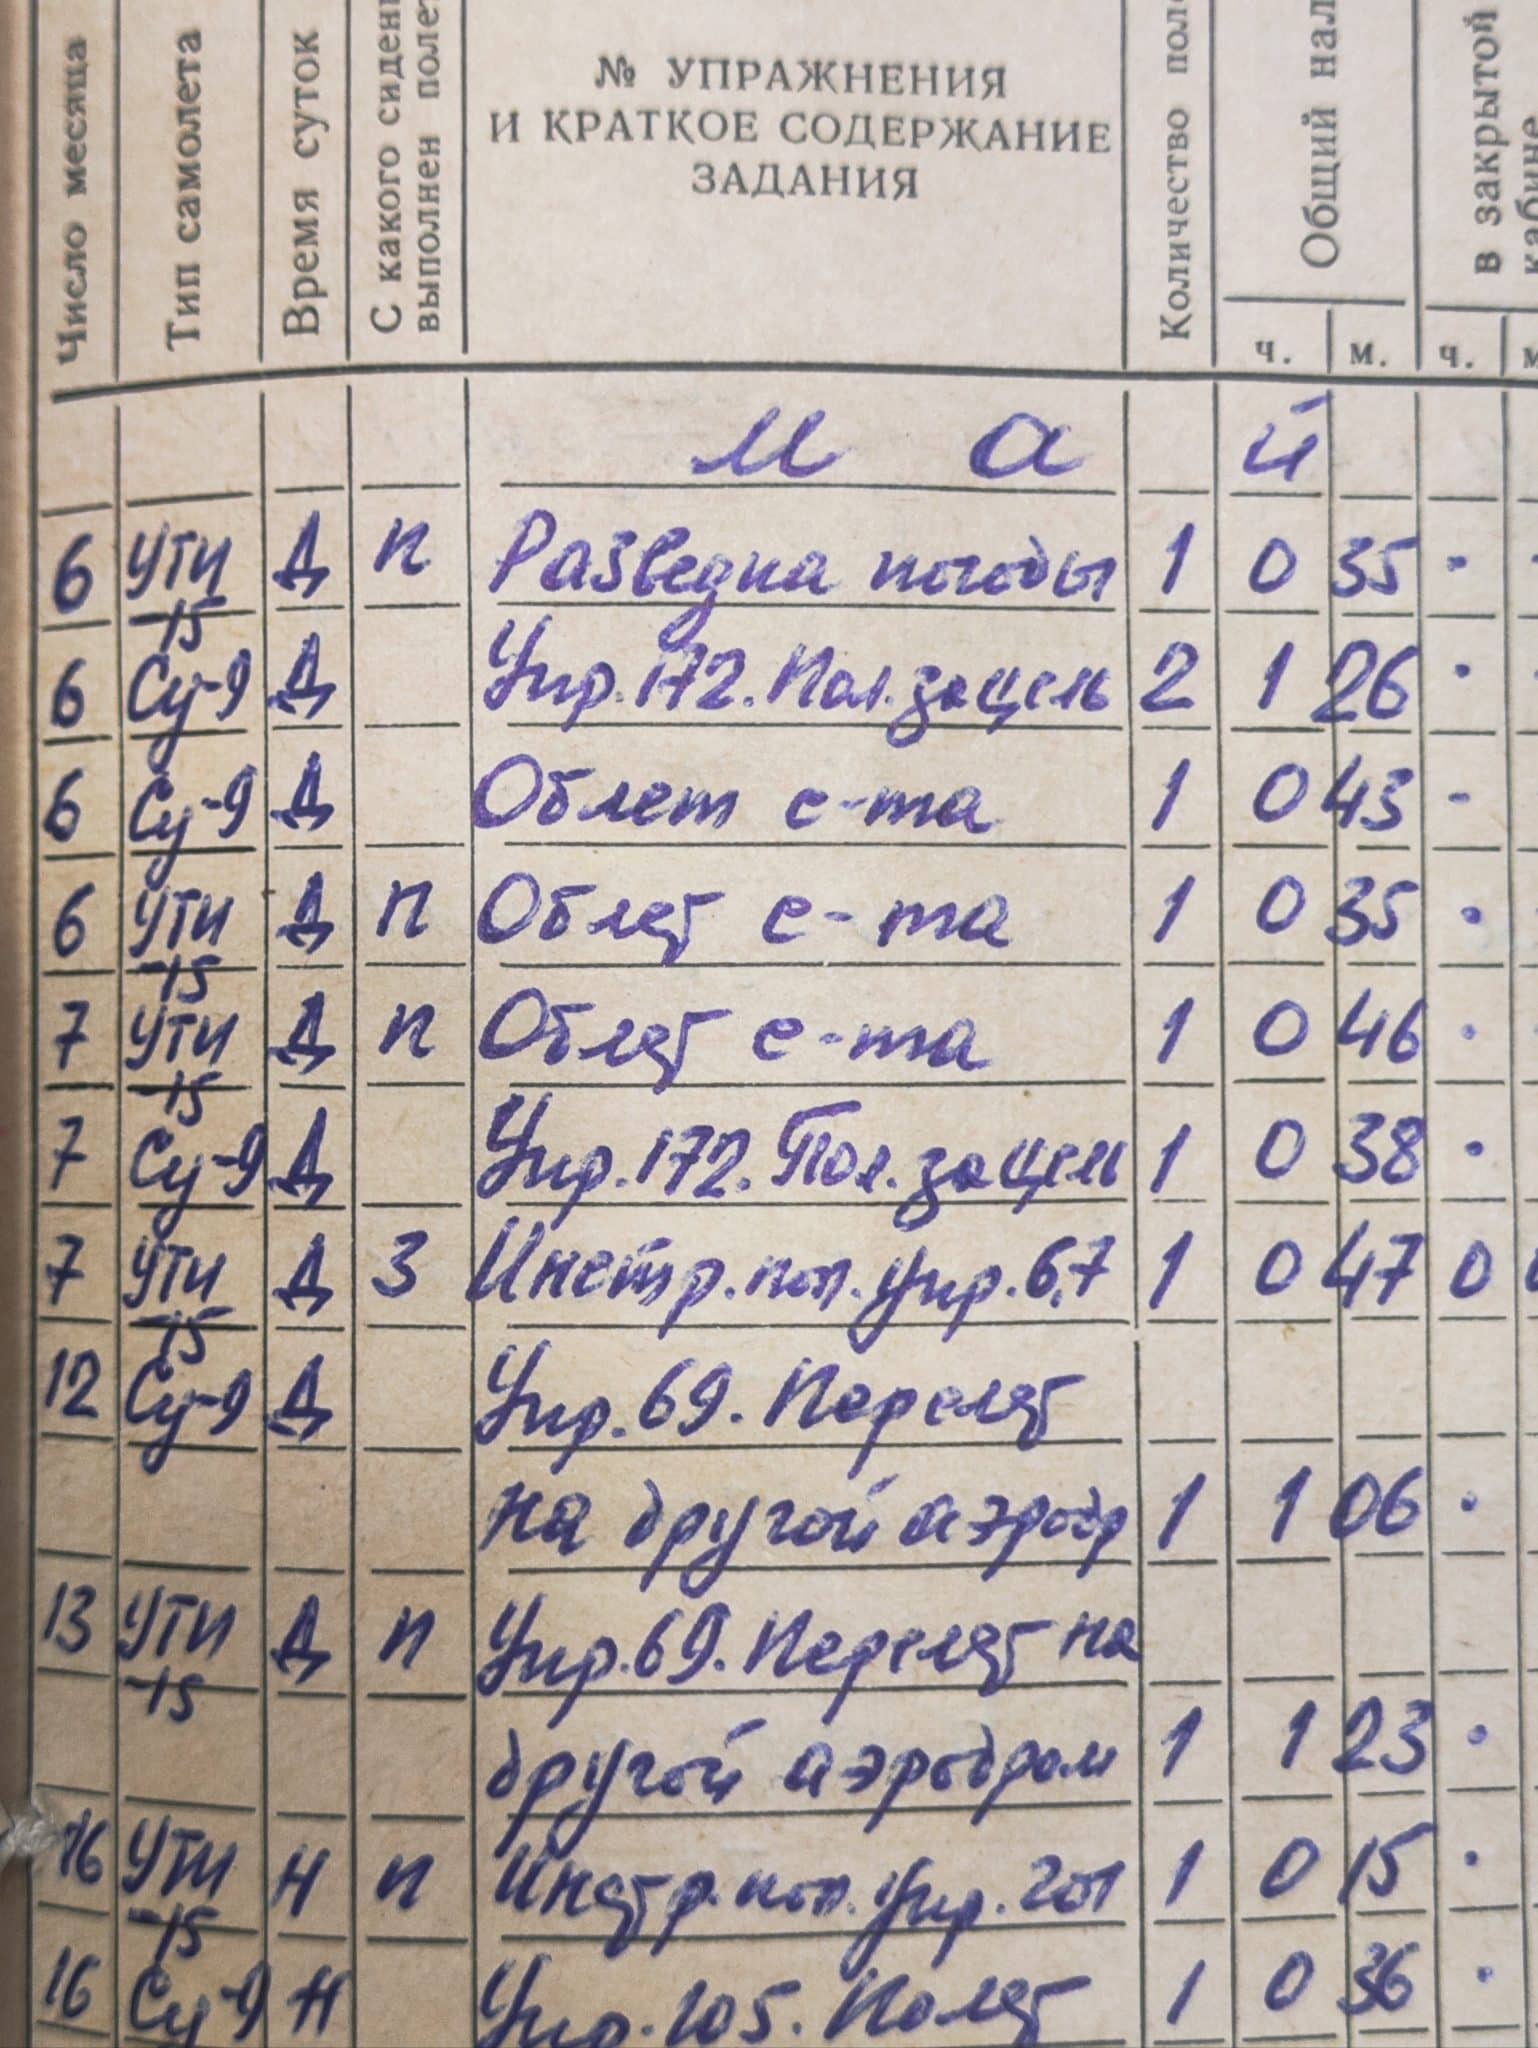 Число месяца
Тип самолета
Время суток
С какого сидень
выполнен полет
№ УПРАЖНЕНИЯ
И КРАТКОЕ СОДЕРЖАНИЕ
ЗАДАНИЯ
Количество пол
Общий нал
в закрытой
кабине
ч. м. ч. м
М а й
6 УТИ Д П Разведка погоды 1 0 35 -
-15
6 Су-9 Д Упр.172.Пол.зацель 2 1 26 -
6 Су-9 Д Облет с-та 1 0 43 -
6 УТИ Д П Облет с-та 1 0 35 -
-15
7 УТИ Д П Облет с-та 1 0 46 -
-15
7 Су-9 Д Упр.172.Пол.зацель 1 0 38 -
7 УТИ Д З Инстр.пол.упр.6,7 1 0 47 0
-15
12 Су-9 Д Упр.69.Перелет
на другой аэродр 1 1 06 -
13 УТИ Д П Упр.69.Перелет на
-15
другой аэродром 1 1 23 -
16 УТИ Н П Инстр.пол.упр. 1 0 15 -
-15
16 Су-9 Н Упр.105.Полет 1 0 36 -